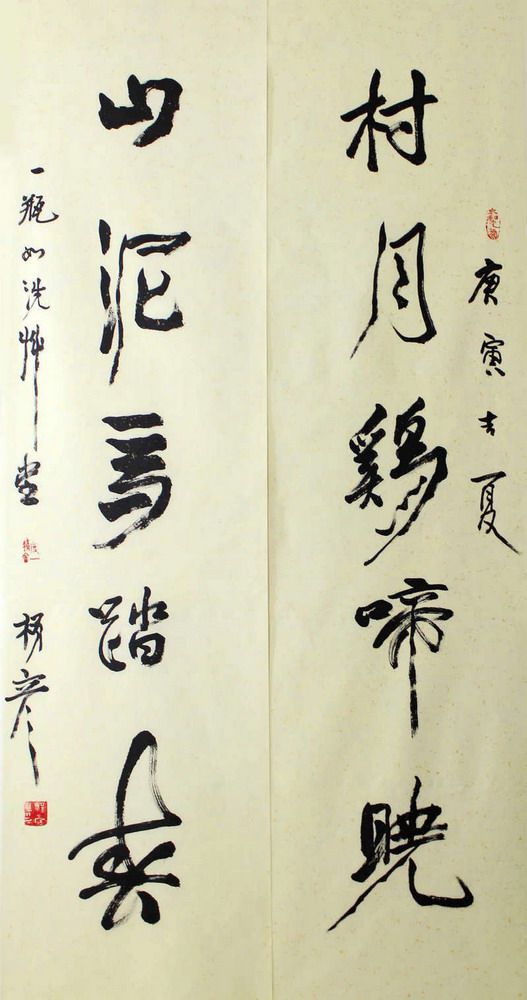 庚寅吉夏
村月鷄啼曉
山泥馬踏春
一瓶如洗草堂
楊彦